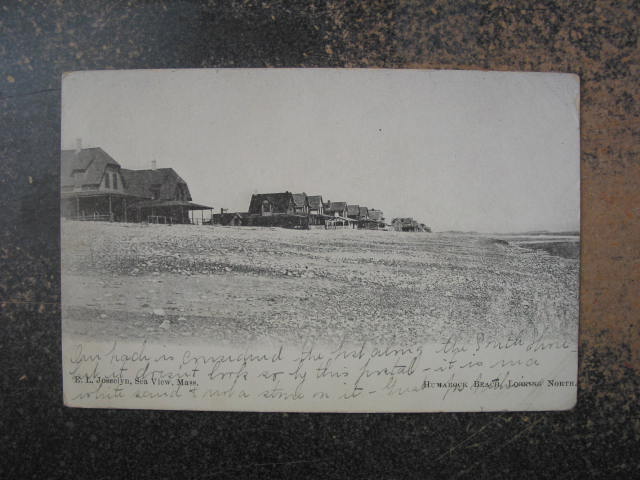 Our beach is considered the best along the South Shore -
but it doesn't look so by this postal - it is in a
E. L. Josselyn, Sea View, Mass.
Humarock Beach, Looking North.
white sand & not a stone on it -